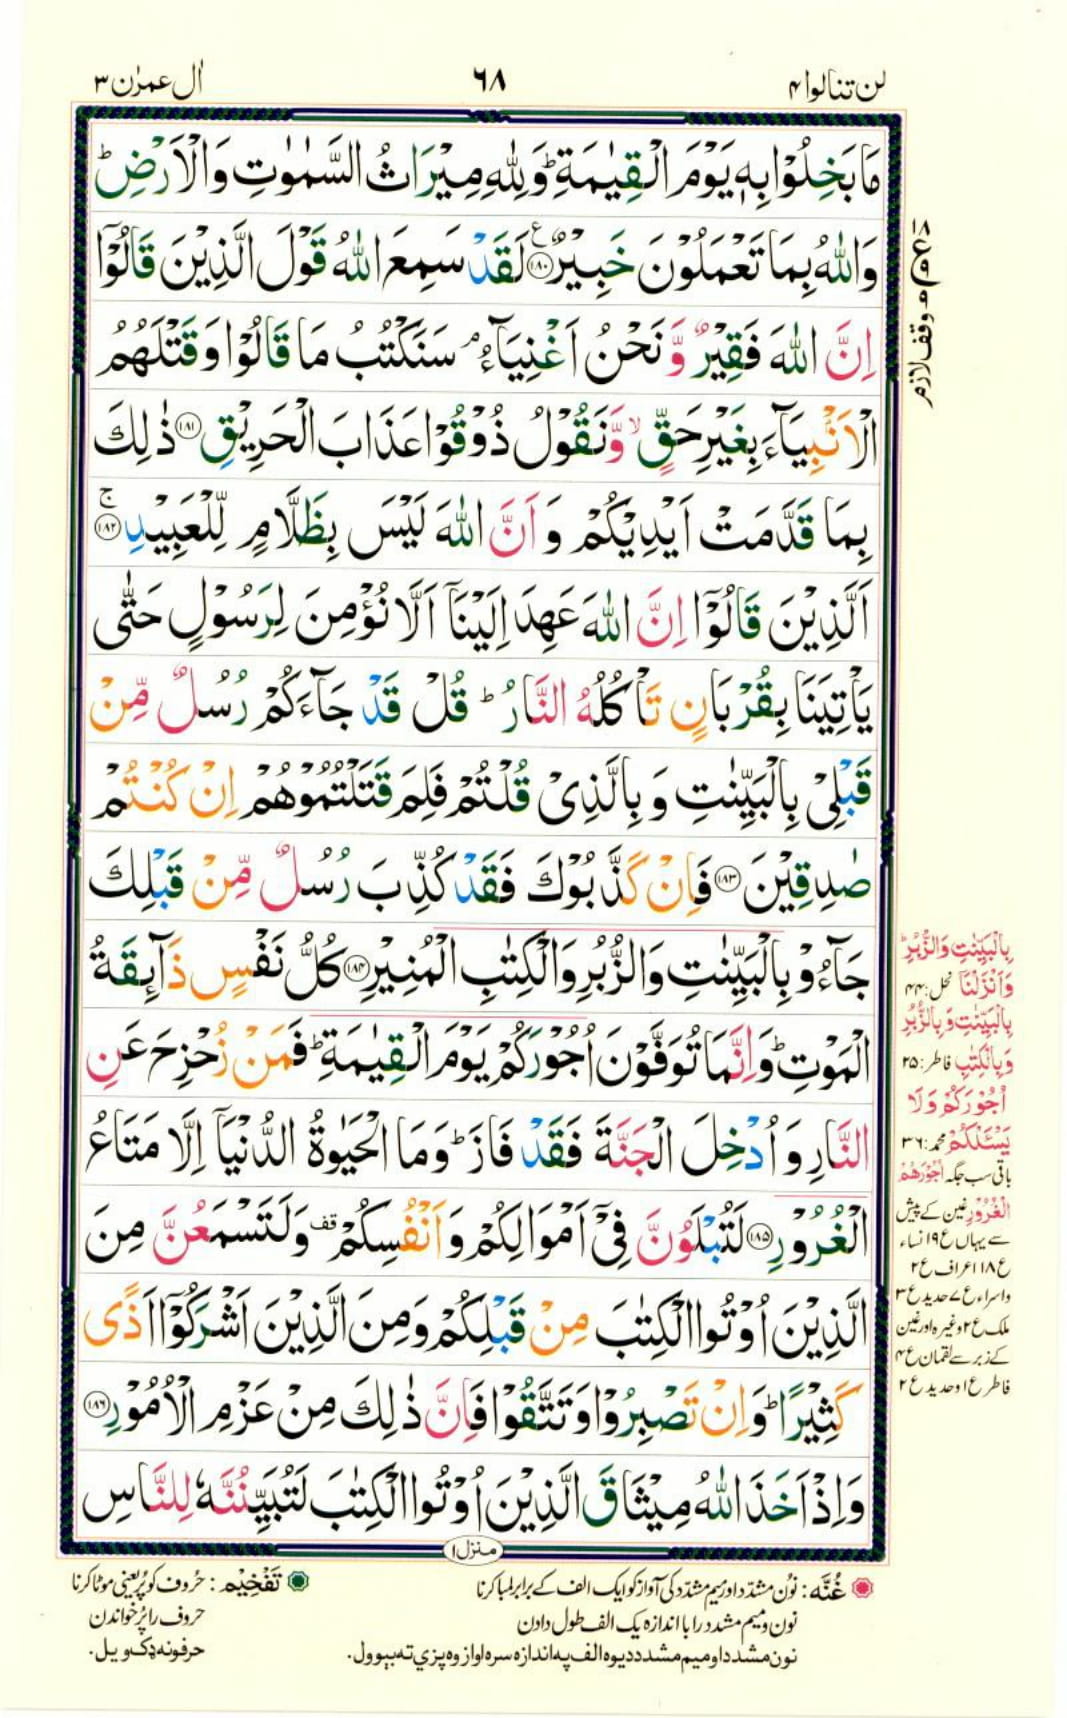 لن تنالوا ۴
۶۸
اٰل عمرٰن ۳
مَا بَخِلُوْا بِهٖ يَوْمَ الْقِيٰمَةِ ؕ وَلِلّٰهِ مِيْرَاثُ السَّمٰوٰتِ وَالْاَرْضِ ؕ
وَاللّٰهُ بِمَا تَعْمَلُوْنَ خَبِيْرٌ ۧ‏﴿۱۸۰﴾ لَقَدْ سَمِعَ اللّٰهُ قَوْلَ الَّذِيْنَ قَالُوْۤا
اِنَّ اللّٰهَ فَقِيْرٌ وَّنَحْنُ اَغْنِيَآءُ ۘ سَنَكْتُبُ مَا قَالُوْا وَقَتْلَهُمُ
الْاَنْۢبِيَآءَ بِغَيْرِ حَقٍّ ۙ وَّنَقُوْلُ ذُوْقُوْا عَذَابَ الْحَرِيْقِ ﴿۱۸۱﴾ ذٰلِكَ
بِمَا قَدَّمَتْ اَيْدِيْكُمْ وَاَنَّ اللّٰهَ لَيْسَ بِظَلَّامٍ لِّلْعَبِيْدِ ۚ ﴿۱۸۲﴾
اَلَّذِيْنَ قَالُوْۤا اِنَّ اللّٰهَ عَهِدَ اِلَيْنَاۤ اَلَّا نُؤْمِنَ لِرَسُوْلٍ حَتّٰى
يَاْتِيَنَا بِقُرْبَانٍ تَاْكُلُهُ النَّارُ ؕ قُلْ قَدْ جَآءَكُمْ رُسُلٌ مِّنْ
قَبْلِىْ بِالْبَيِّنٰتِ وَبِالَّذِىْ قُلْتُمْ فَلِمَ قَتَلْتُمُوْهُمْ اِنْ كُنْتُمْ
صٰدِقِيْنَ ﴿۱۸۳﴾ فَاِنْ كَذَّبُوْكَ فَقَدْ كُذِّبَ رُسُلٌ مِّنْ قَبْلِكَ
جَآءُوْ بِالْبَيِّنٰتِ وَالزُّبُرِ وَالْكِتٰبِ الْمُنِيْرِ ﴿۱۸۴﴾ كُلُّ نَفْسٍ ذَآٮِٕقَةُ
الْمَوْتِ ؕ وَاِنَّمَا تُوَفَّوْنَ اُجُوْرَكُمْ يَوْمَ الْقِيٰمَةِ ؕ فَمَنْ زُحْزِحَ عَنِ
النَّارِ وَاُدْخِلَ الْجَنَّةَ فَقَدْ فَازَ ؕ وَمَا الْحَيٰوةُ الدُّنْيَاۤ اِلَّا مَتَاعُ
الْغُرُوْرِ ﴿۱۸۵﴾ لَتُبْلَوُنَّ فِىْۤ اَمْوَالِكُمْ وَاَنْفُسِكُمْ قف وَلَتَسْمَعُنَّ مِنَ
الَّذِيْنَ اُوْتُوا الْكِتٰبَ مِنْ قَبْلِكُمْ وَمِنَ الَّذِيْنَ اَشْرَكُوْۤا اَذًى
كَثِيْرًا ؕ وَاِنْ تَصْبِرُوْا وَتَتَّقُوْا فَاِنَّ ذٰلِكَ مِنْ عَزْمِ الْاُمُوْرِ ﴿۱۸۶﴾
وَاِذْ اَخَذَ اللّٰهُ مِيْثَاقَ الَّذِيْنَ اُوْتُوا الْكِتٰبَ لَتُبَيِّنُنَّهٗ لِلنَّاسِ
منزل ۱
وقف لازم
بِالْبَيِّنٰتِ وَالزُّبُرِ ؕ
وَاَنْزَلْنَاۤ نحل : ۴۴
بِالْبَيِّنٰتِ وَبِالزُّبُرِ
وَبِالْكِتٰبِ فاطر : ۲۵
اُجُوْرَكُمْ وَلَا
يَسْئَلْكُمْ محمد : ۳۶
باقی سب جگہ اُجُوْرَهُمْ
الْغُرُوْرِ غین کے پیش
سے یہاں ع ۱۹ نساء
ع ۱۸ اعراف ع ۲
واسراء ع ۷ حدید ع ۳
ملک ع ۲ وغیرہ اور غین
کے زبر سے لقمان ع ۴
فاطر ع ۱ وحدید ع ۲
غُنَّه : نون مشدّد اور میم مشدّد کی آواز کو ایک الف کے برابر لمبا کرنا
نون و میم مشدد را با اندازه یک الف طول دادن
نون مشدد او میم مشدد د یوه الف په اندازه سره اواز وه پزې ته بېوول.
تَفْخِيْم : حُروف کو پُر یعنی موٹا کرنا
حروف را پُر خواندن
حرفونه ډک ویل.